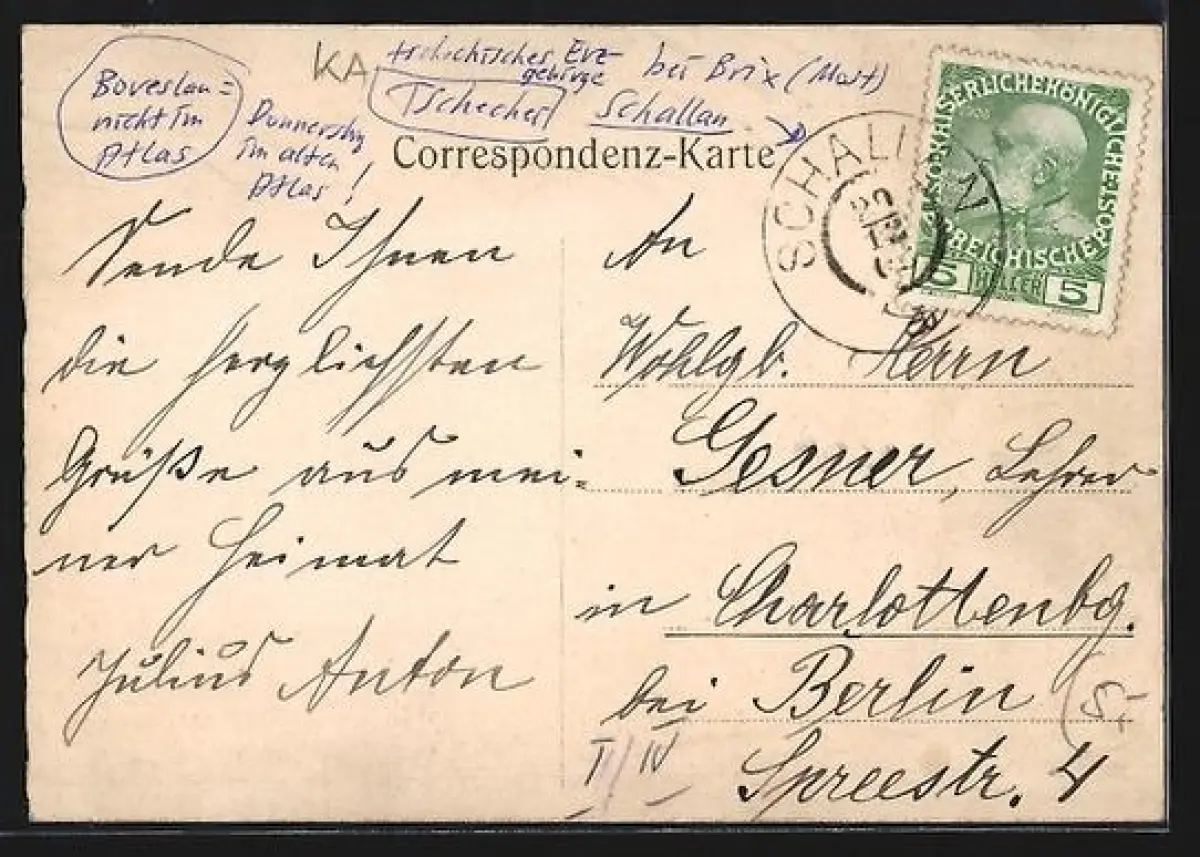 Boreslau =
nicht im
Atlas
Donnersbg
im alten
Atlas!
KA
tschechisches Erz-
gebirge
Tschechei
bei Brix (Most)
Schallan
Correspondenz-Karte
SCHALLAN
KAISERLICHEKÖNIGLICHE ÖSTERREICHISCHE POST
1908
5 HELLER 5
Sende Ihnen
die herzlichsten
Grüße aus mei-
ner Heimat
Julius Anton
An
Wohlgb. Herrn
Gesner, Lehrer
in Charlottenbg.
bei Berlin
Spreestr. 4
(5,-
I/IV